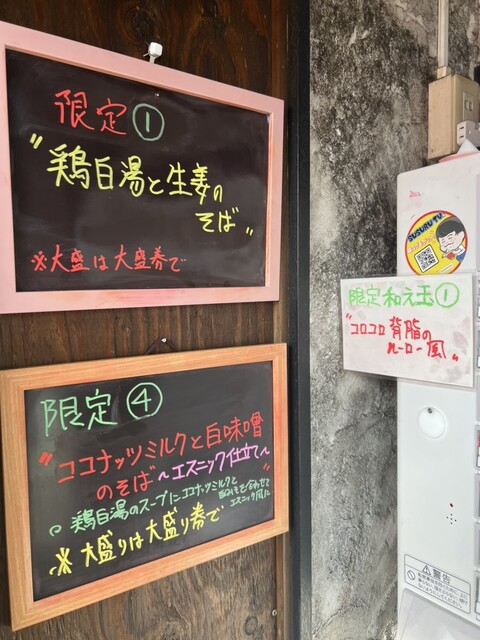 限定①
"鶏白湯と生姜の
そば"
※大盛は大盛券で
限定④
"ココナッツミルクと白味噌
のそば~エスニック仕立て~"
鶏白湯のスープにココナッツミルクと
白みそを合わせて
エスニック風に
※大盛りは大盛り券で
SUSURU TV.
限定和え玉①
"コロコロ背脂の
ルーロー風"
警告